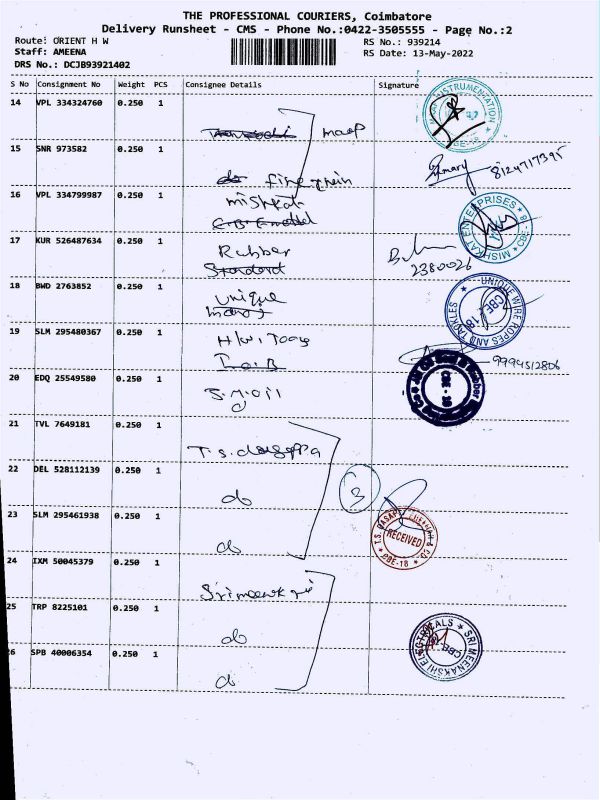 THE PROFESSIONAL COURIERS, Coimbatore
Delivery Runsheet - CMS - Phone No.:0422-3505555 - Page No.:2
Route: ORIENT H W
Staff: AMEENA
DRS No.: DCJB93921402
RS No.: 939214
RS Date: 13-May-2022
S No Consignment No Weight PCS Consignee Details Signature
14 VPL 334324760 0.250 1
15 SNR 973582 0.250 1
8124717395
16 VPL 334799987 0.250 1 mishkat
MISHKAT ENTERPRISES
17 KUR 526487634 0.250 1 Rubber
Standard
2380026
18 BWD 2763852 0.250 1 Unique
UNIQUE WIRE ROPES AND TACKLES
CBE - 18
19 SLM 295480367 0.250 1
9994512806
20 EDQ 25549580 0.250 1
CBE - 18
21 TVL 7649181 0.250 1
22 DEL 528112139 0.250 1 do
3
23 SLM 295461938 0.250 1 do
RECEIVED
CBE-18
24 IXM 50045379 0.250 1
25 TRP 8225101 0.250 1 do
26 SPB 40006354 0.250 1 do
SRI MEENAKSHI ELECTRICALS